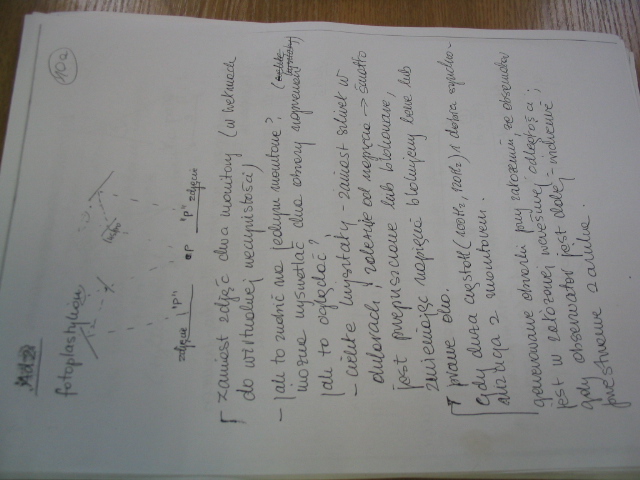 10a
fotoplastykon
zdjęcie "P" "P" "P" zdjęcie
zamiast zdjęć dwa monitory (w hełmach
do wirtualnej rzeczywistości)
- Jak to zrobić na jednym monitorze?
można wyświetlać dwa obrazy naprzemian
Jak to oglądać?
- ciekłe kryształy - zamiast szkieł w
okularach, zależnie od napięcia → światło
jest przepuszczone lub blokowane,
zmieniając napięcie blokujemy lewe lub
prawe oko.
Gdy duża częstotl. (100Hz, 120Hz) i dobra synchro-
nizacja z monitorem.
generowane obrazki przy założeniu, że obserwator
jest w założonej odległości;
gdy obserwator jest dalej - widzenie
przestrzenne zanika.